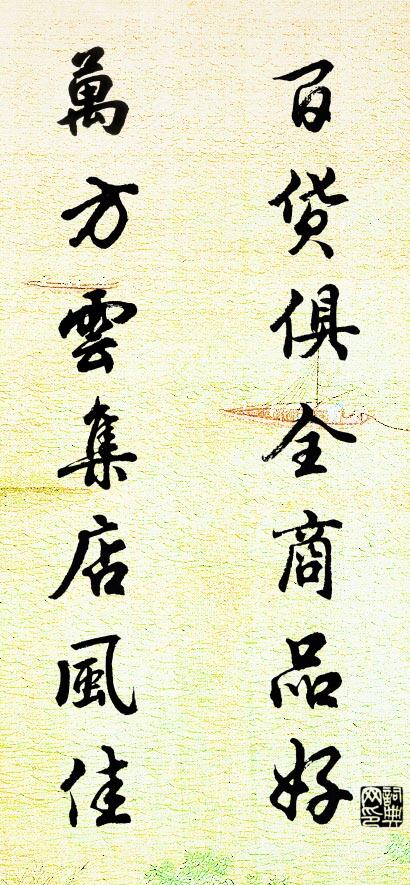 百貨俱全商品好
萬方雲集店風佳
詞典
网